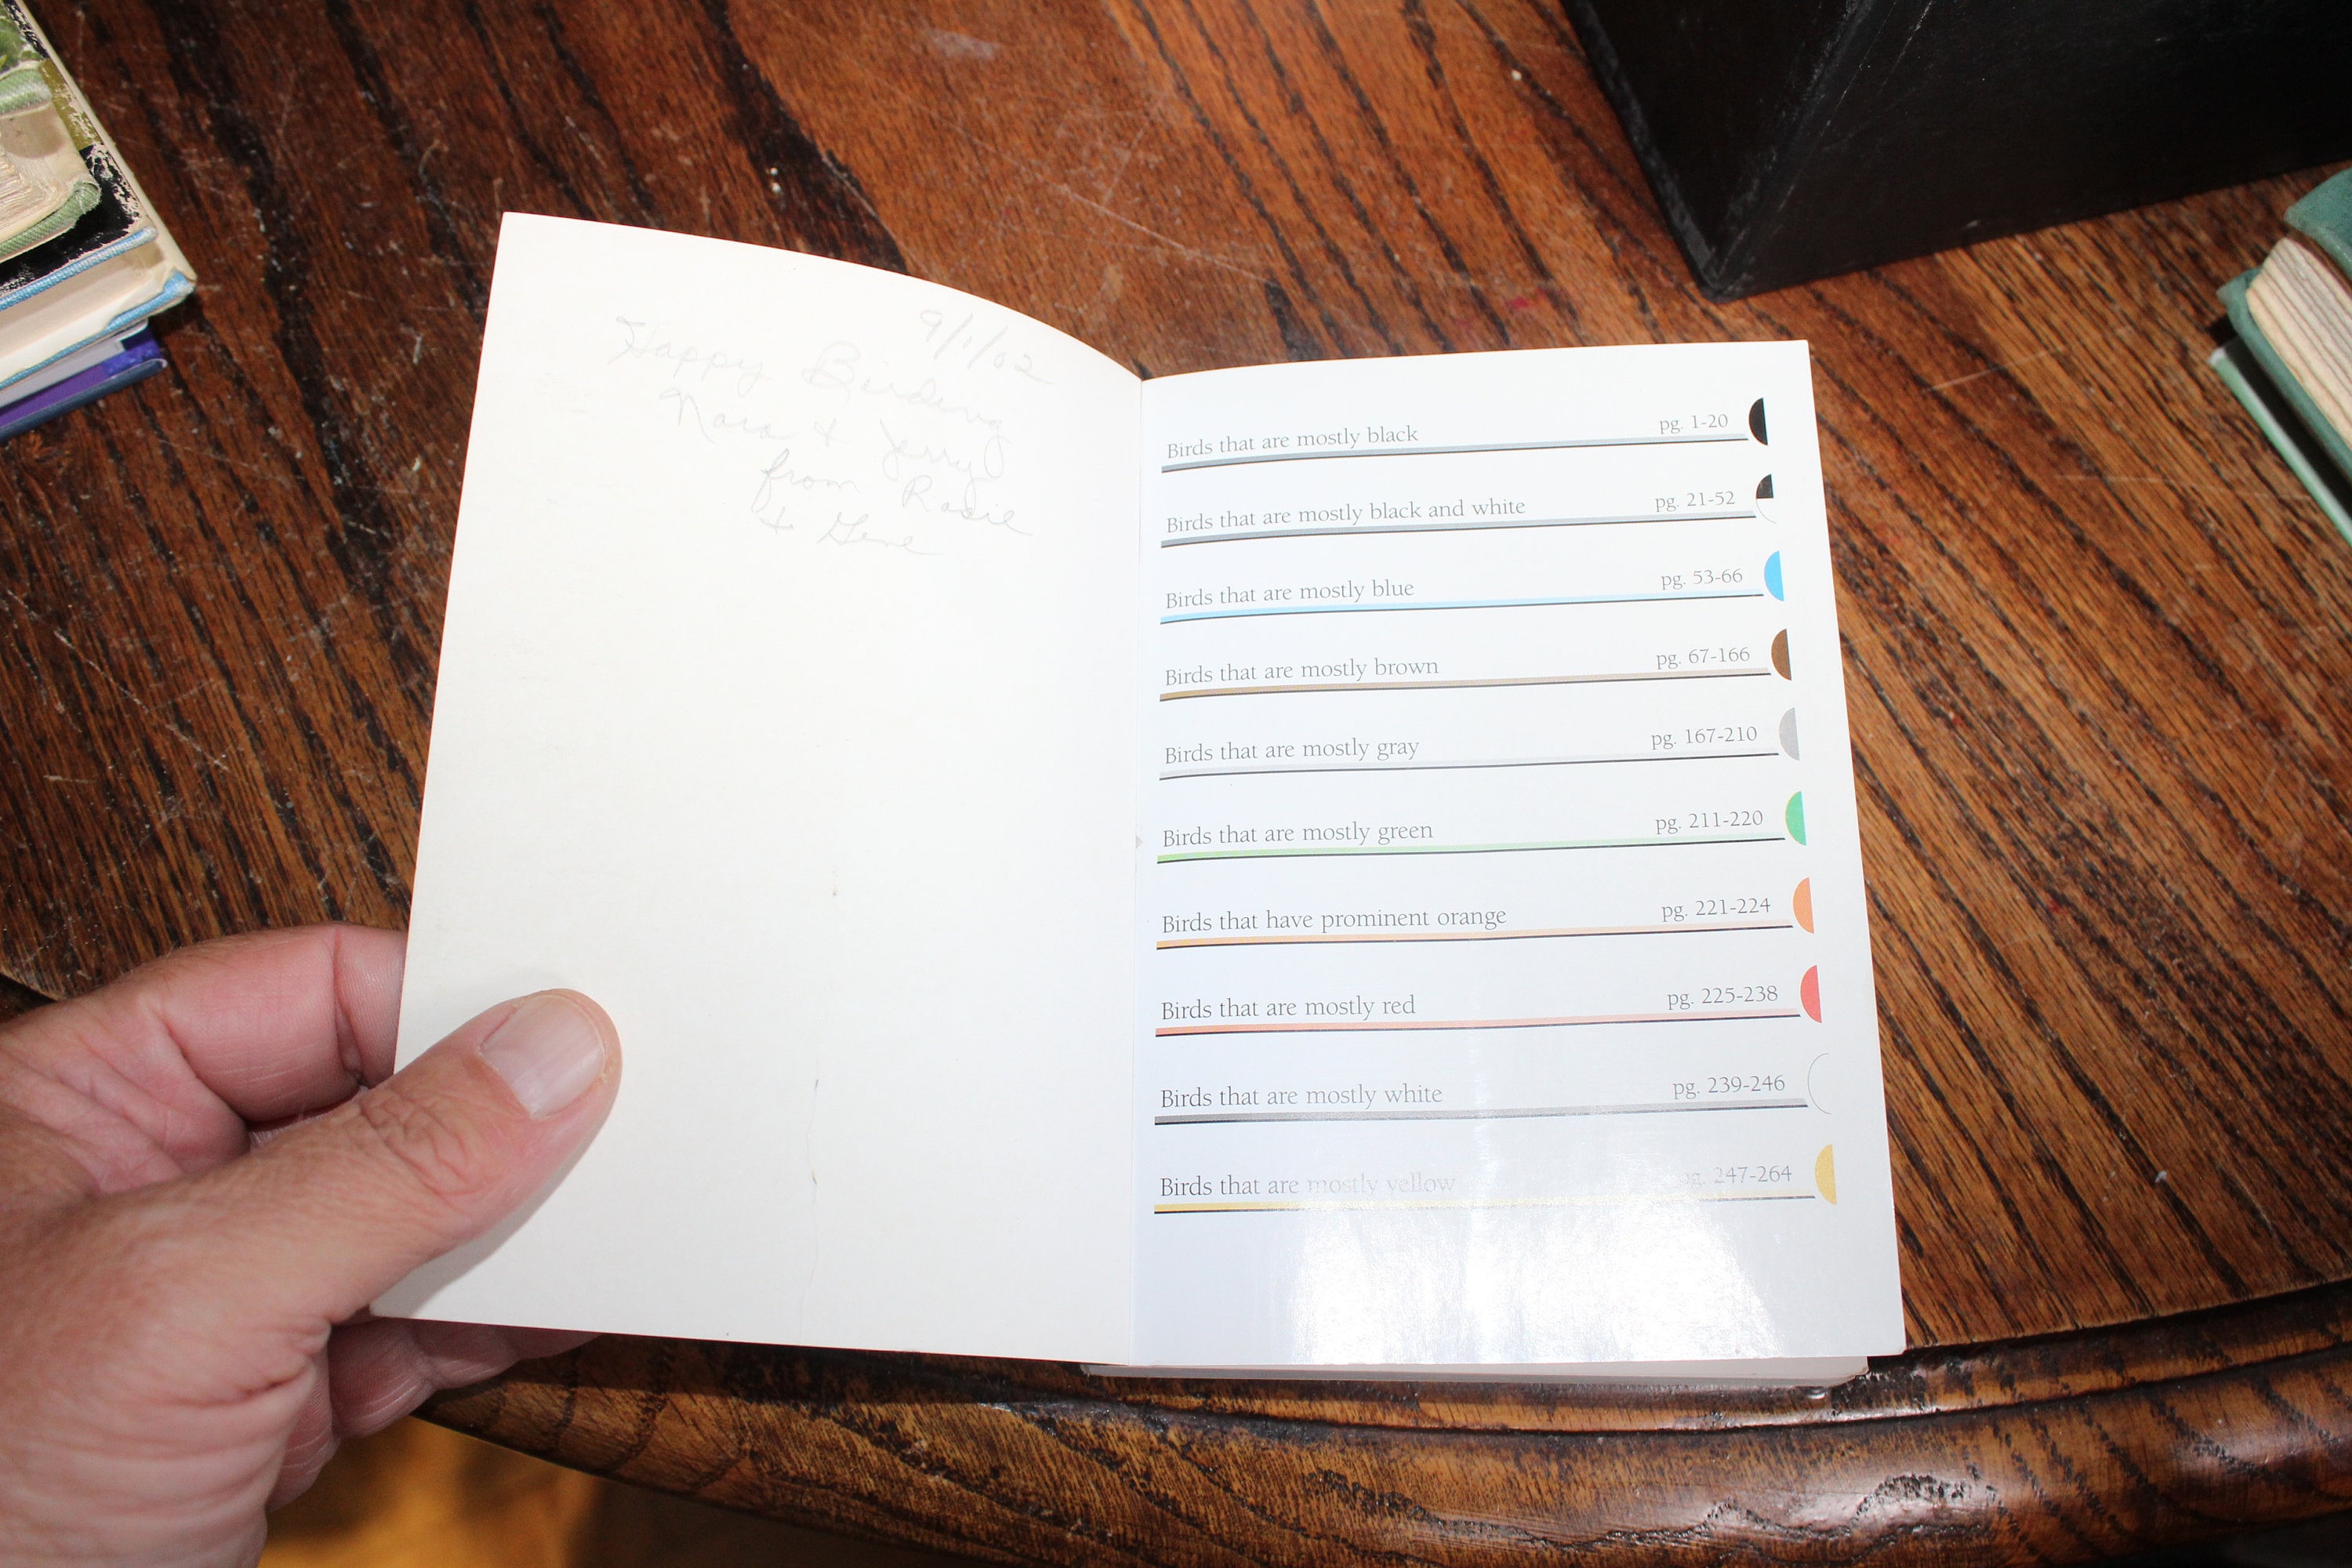 9/1/02
Happy Birding
Nara & Jerry
from Rosie
& Gene
Birds that are mostly black pg. 1-20
Birds that are mostly black and white pg. 21-52
Birds that are mostly blue pg. 53-66
Birds that are mostly brown pg. 67-166
Birds that are mostly gray pg. 167-210
Birds that are mostly green pg. 211-220
Birds that have prominent orange pg. 221-224
Birds that are mostly red pg. 225-238
Birds that are mostly white pg. 239-246
Birds that are mostly yellow pg. 247-264